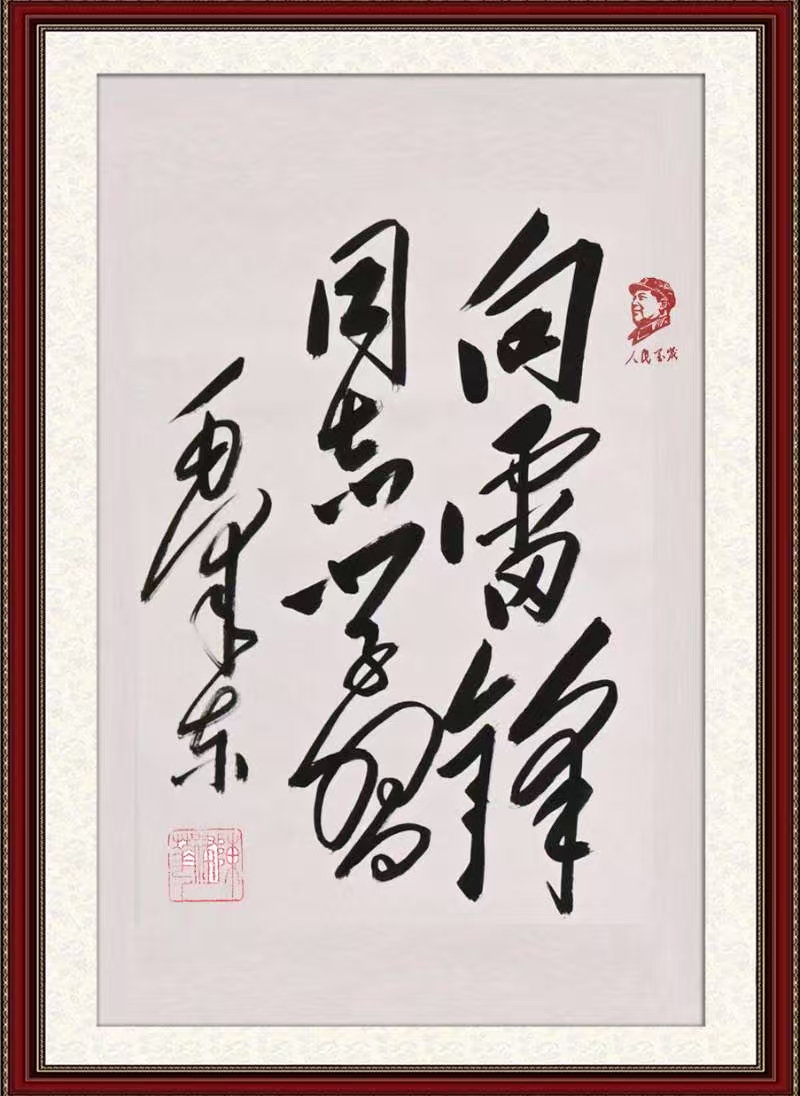 人民万岁
向雷锋
同志学习
毛泽东